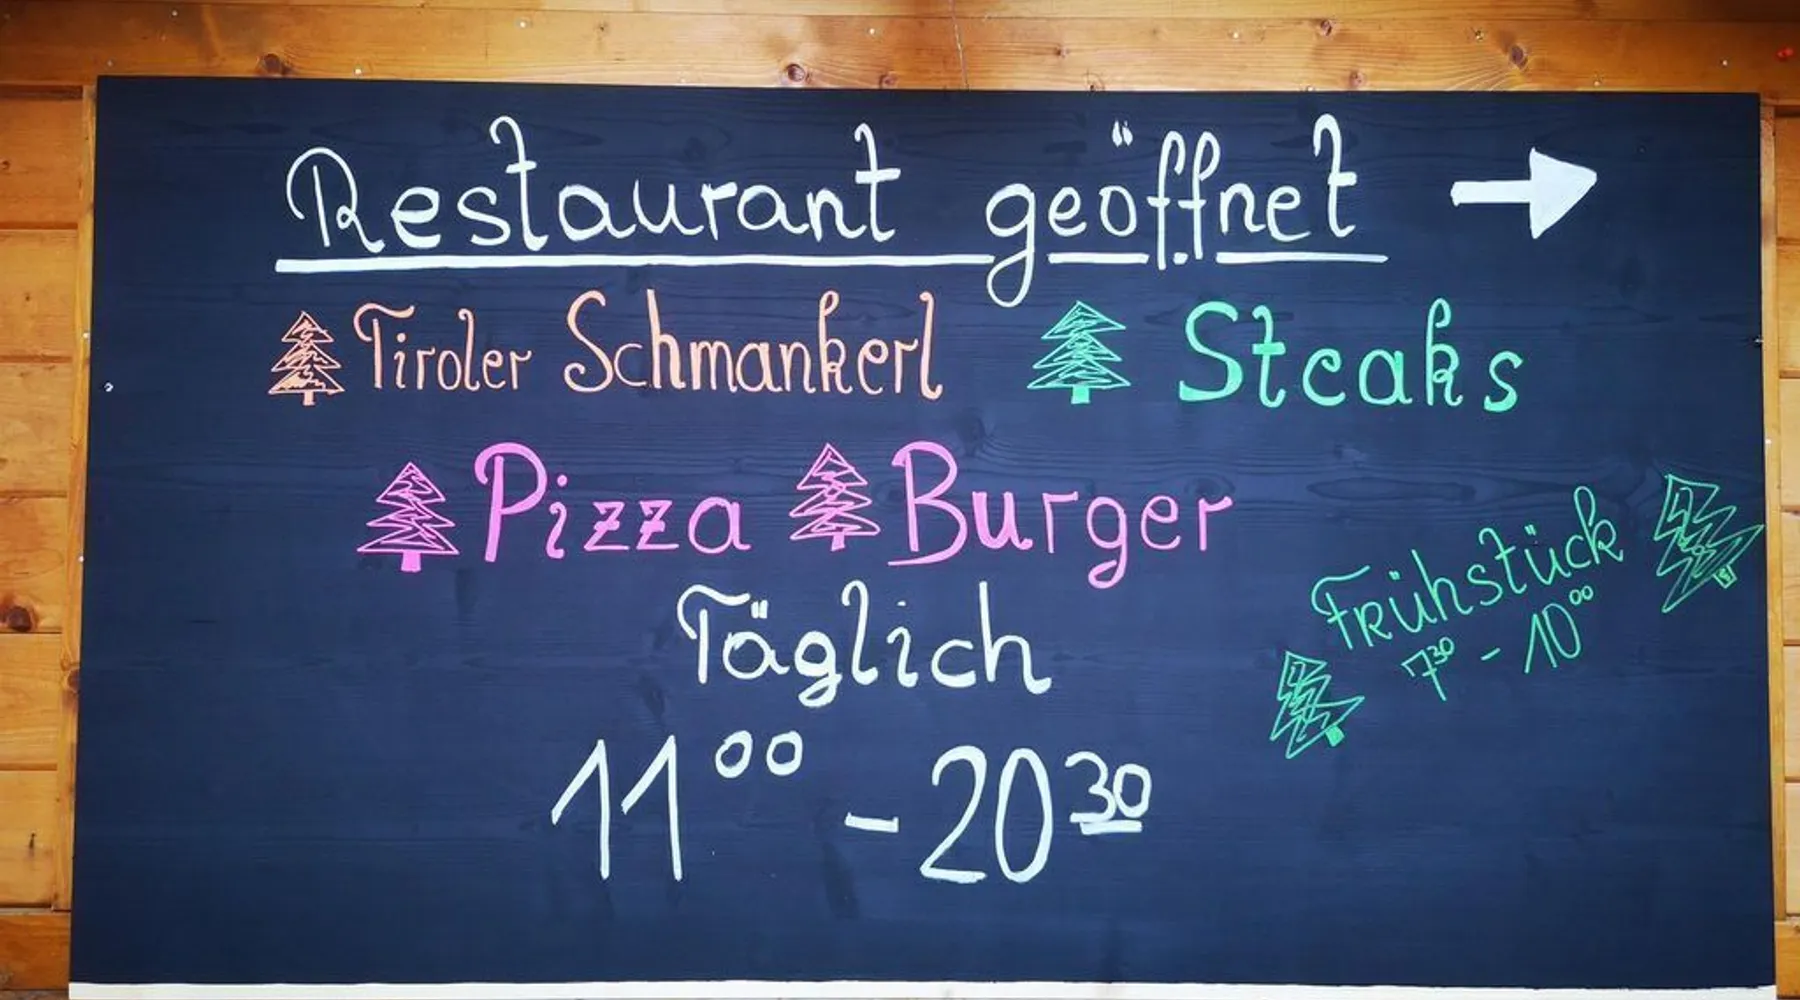 Restaurant geöffnet
Tiroler Schmankerl Steaks
Pizza Burger
Täglich
11⁰⁰ - 20³⁰
Frühstück
7³⁰ - 10⁰⁰